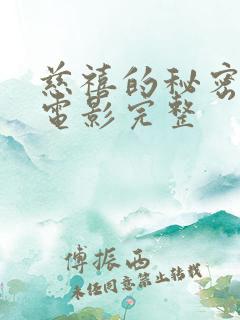 慈禧的秘密
电影完整
傅振西
未经同意禁止转载